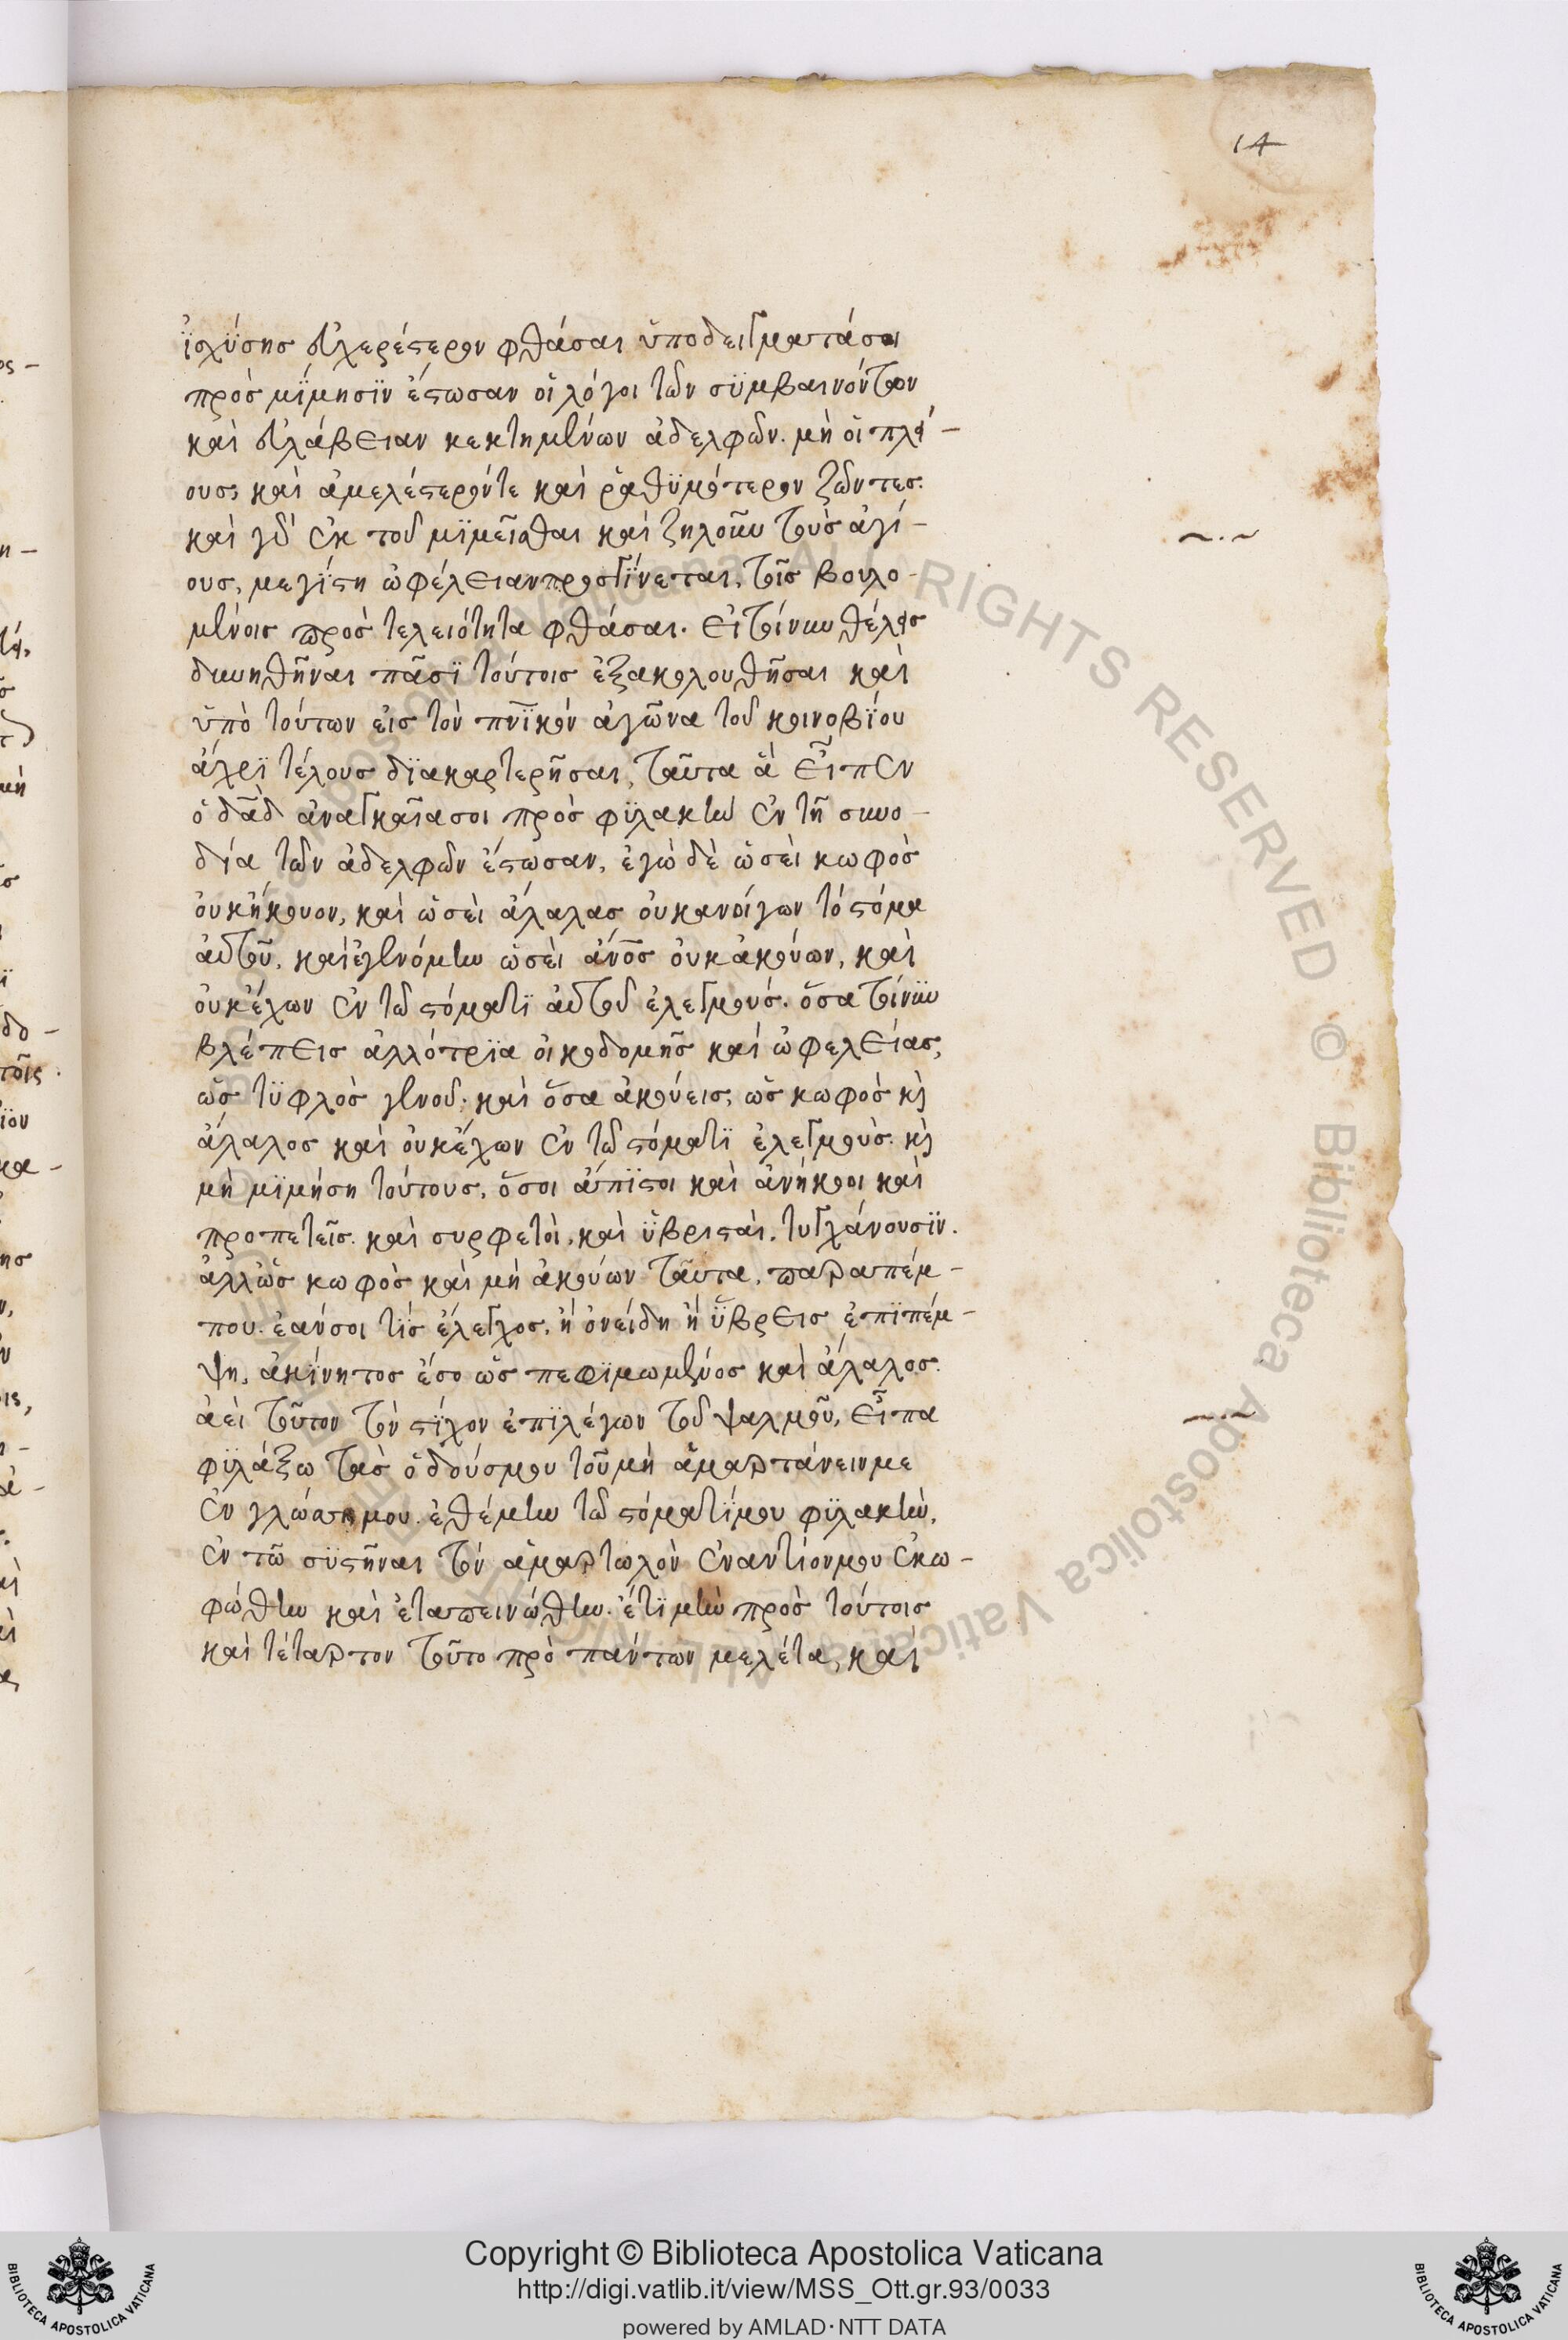 14
ἰσχύσῃς εὐχερέστερον φθάσαι ὑποδείγματάσοι
πρὸς μίμησϊν ἔστωσαν οἱ λόγοι τῶν συμβαινόντων
καὶ εὐλάβειαν κεκτημένων ἀδελφῶν. μὴ οἱ πλεί-
ους, καὶ ἀμελέστερόντε καὶ ῥαθϋμότερον ζῶντες.
καὶ γὰρ ἐκ τοῦ μϊμεῖσθαι καὶ ζηλοῦν τοὺς ἁγί-
ους, μεγίστη ὠφέλειαπροσγίνεται, τοῖς βουλο-
μένοις πρὸς τελειότητα φθάσαι. εἰ τοίνυν θέλεις
δυνηθῆναι πᾶσϊ τούτοις ἐξακολουθῆσαι καὶ
ὑπὸ τούτων εἰς τὸν πνϊκόν ἀγῶνα τοῦ κοινοβίου
ἄχρϊ τέλους δϊακαρτερῆσαι, ταῦτα ἃ εἶπεν
ὁ δᾱδ ἀναγκαῖασοι πρὸς φϋλακὴν ἐν τῇ συνο-
δία τῶν ἀδελφῶν ἔστωσαν, ἐγὼ δὲ ὡσεὶ κωφὸς
οὐκἤκουον, καὶ ὡσεὶ ἄλαλας οὐκανοίγων τὸ στόμα
αὐτοῦ, καὶἐγενόμην ὡσεὶ ἄνος οὐκἀκούων, καὶ
οὐκἔχων ἐν τῶ στόματϊ αὐτοῦ ἐλεγμούς. ὅσα τοίνυν
βλέπεις ἀλλότρϊα οἰκοδομῆς καὶ ὠφελείας,
ὡς τϋφλὸς γενοῦ. καὶ ὅσα ἀκούεις, ὡς κωφὸς κὶ
ἄλαλος καὶ οὐκἔχων ἐν τῶ στόματϊ ἐλεγμοὺς. κὶ
μὴ μϊμήση τούτους, ὅσοι ἄπϊστοι καὶ ἀνήκοοι καὶ
προπετεῖς. καὶ συρφετοὶ, καὶ ὑβρισταὶ, τυγχάνουσϊν.
ἀλλὡς κωφὸς καὶ μὴ ἀκούων ταῦτα, παραπέμ-
που. ἐανσοι τὶς ἔλεγχος, ἢ ὀνείδη ἢ ὕβρεις ἐπϊπέμ-
ψη, ἀκίνητος ἔσο ὡς πεφϊμωμένος καὶ ἄλαλος.
ἀεὶ τοῦτον τὸν στίχον ἐπϊλέγων τοῦ ψαλμοῦ, εἶπα
φϋλάξω τὰς ὁδούςμου τοῦμὴ ἁμαρτάνεινμε
ἐν γλώσσῃ μου. ἐθέμην τῶ στόματίμου φϋλακὴν,
ἐν τῶ σϋστῆναι τὸν ἁμαρτωλὸν ἐναντίονμου ἐκω-
φώθην καὶ ἐταπεινώθην. ἔτϊ μὴν πρὸς τούτοις
καὶ τέταρτον τοῦτο πρὸ πάντων μελέτα, καὶ
Copyright © Biblioteca Apostolica Vaticana
http://digi.vatlib.it/view/MSS_Ott.gr.93/0033
powered by AMLAD·NTT DATA